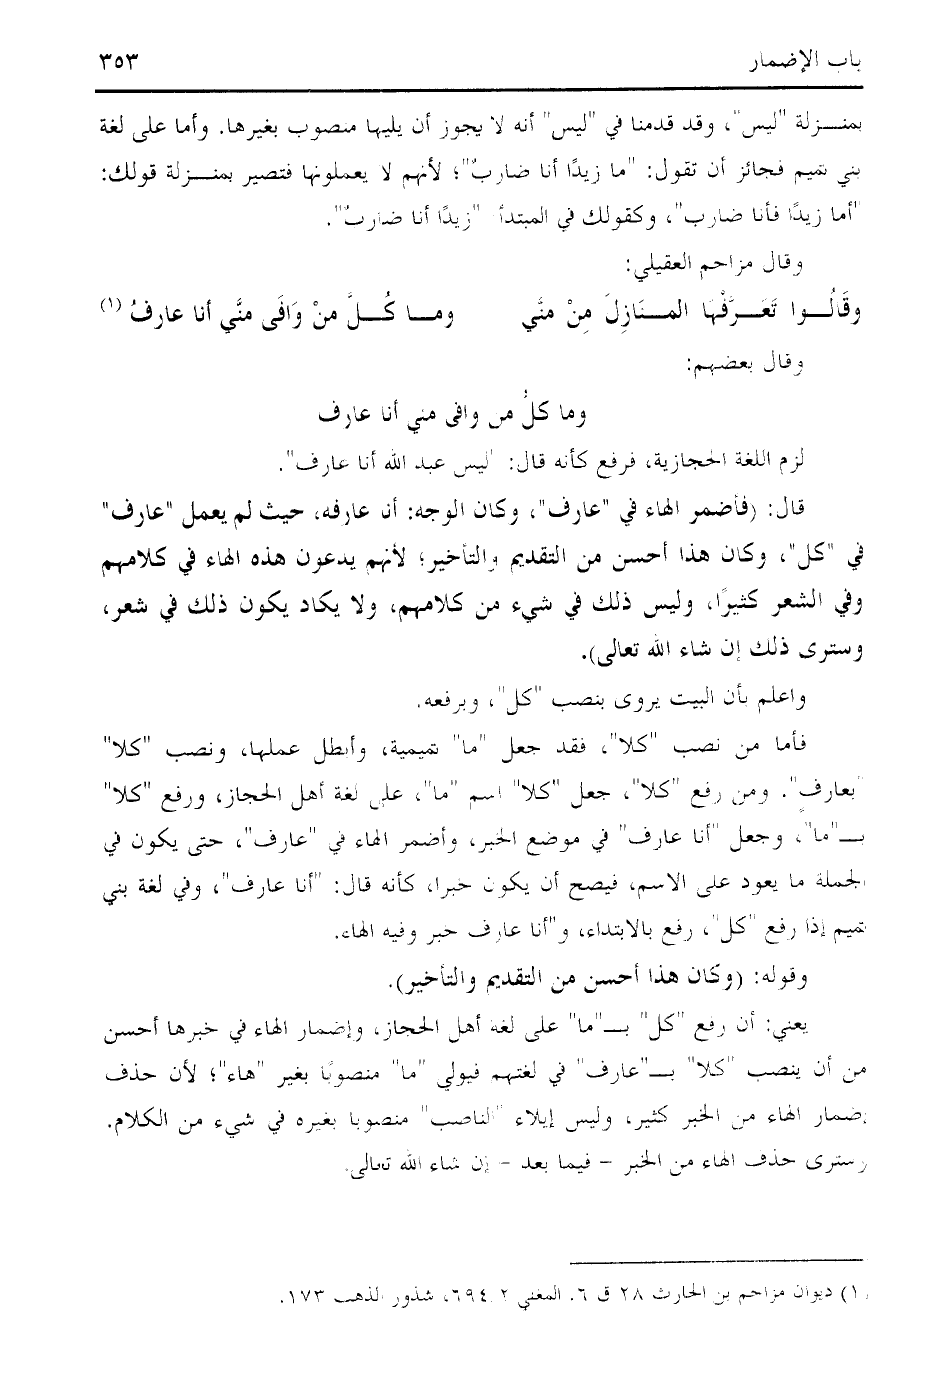 باب الإضمار ٣٥٣
بمنـزلة "ليس"، وقد قدمنا في "ليس" أنه لا يجوز أن يليها منصوب بغيرها. وأما على لغة
بني تميم فجائز أن تقول: "ما زيدًا أنا ضاربٌ"؛ لأنهم لا يعملونها فتصير بمنـزلة قولك:
"أما زيدًا فأنا ضارب"، وكقولك في المبتدأ "زيدًا أنا ضاربٌ".
وقال مزاحم العقيلي:
وقَالُــوا تَعَــرَّفْهَا المـنَازِلَ مِنْ منًى ومــا كُــلَّ منْ وَافَى منًى أنا عارفُ (١)
وقال بعضهم:
وما كلُّ من وافى منى أنا عارف
لزم اللغة الحجازية، فرفع كأنه قال: "ليس عبد الله أنا عارف".
قال: (فأضمر الهاء في "عارف"، وكان الوجه: أنا عارفه، حيث لم يعمل "عارف"
في "كل"، وكان هذا أحسن من التقديم والتأخير؛ لأنهم يدعون هذه الهاء في كلامهم
وفي الشعر كثيرًا، وليس ذلك في شيء من كلامهم، ولا يكاد يكون ذلك في شعر،
وسترى ذلك إن شاء الله تعالى).
واعلم بأن البيت يروى بنصب "كل"، وبرفعه.
فأما من نصب "كلا"، فقد جعل "ما" تميمية، وأبطل عملها، ونصب "كلا"
"بعارف". ومن رفع "كلا"، جعل "كلا" اسم "ما"، على لغة أهل الحجاز، ورفع "كلا"
بــ"ما"، وجعل "أنا عارف" في موضع الخبر، وأضمر الهاء في "عارف"، حتى يكون في
الجملة ما يعود على الاسم، فيصح أن يكون خبرا، كأنه قال: "أنا عارف"، وفي لغة بني
تميم إذا رفع "كل"، رفع بالابتداء، و"أنا عارف خبر وفيه الهاء.
وقوله: (وكان هذا أحسن من التقديم والتأخير).
يعني: أن رفع "كل" بــ"ما" على لغة أهل الحجاز، وإضمار الهاء في خبرها أحسن
من أن ينصب "كلا" بــ"عارف" في لغتهم فيولي "ما" منصوبًا بغير "هاء"؛ لأن حذف
إضمار الهاء من الخبر كثير، وليس إيلاء "الناصب" منصوبا بغيره في شيء من الكلام.
وسترى حذف الهاء من الخبر - فيما بعد - إن شاء الله تعالى.
(١) ديوان مزاحم بن الحارث ٢٨ ق ٦. المغني ٢ ٦٩٤، شذور الذهب ١٧٣.